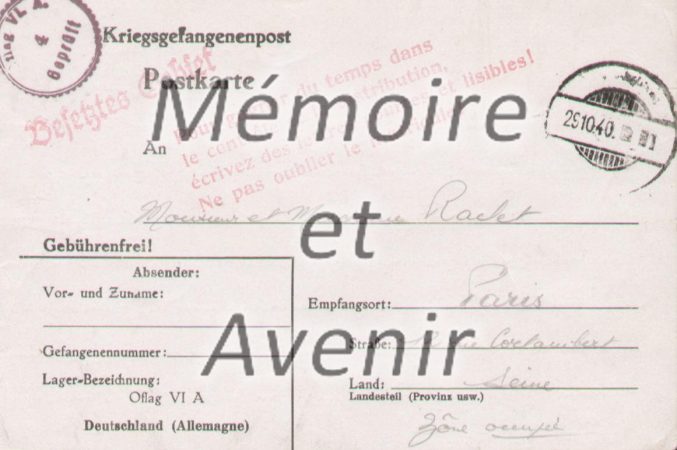 Oflag VI A
4
Geprüft
Kriegsgefangenenpost
Postkarte
Besetztes Gebiet
du temps dans
distribution,
et lisibles!
écrivez des
Ne pas oublier le
29.10.40.
Mémoire
et
Avenir
An
Monsieur et
Gebührenfrei!
Absender:
Vor- und Zuname:
Gefangenennummer:
Lager-Bezeichnung:
Oflag VI A
Deutschland (Allemagne)
Empfangsort: Paris
Straße: rue Cortambert
Land: Seine
Landesteil (Provinz usw.)
Zône occupée